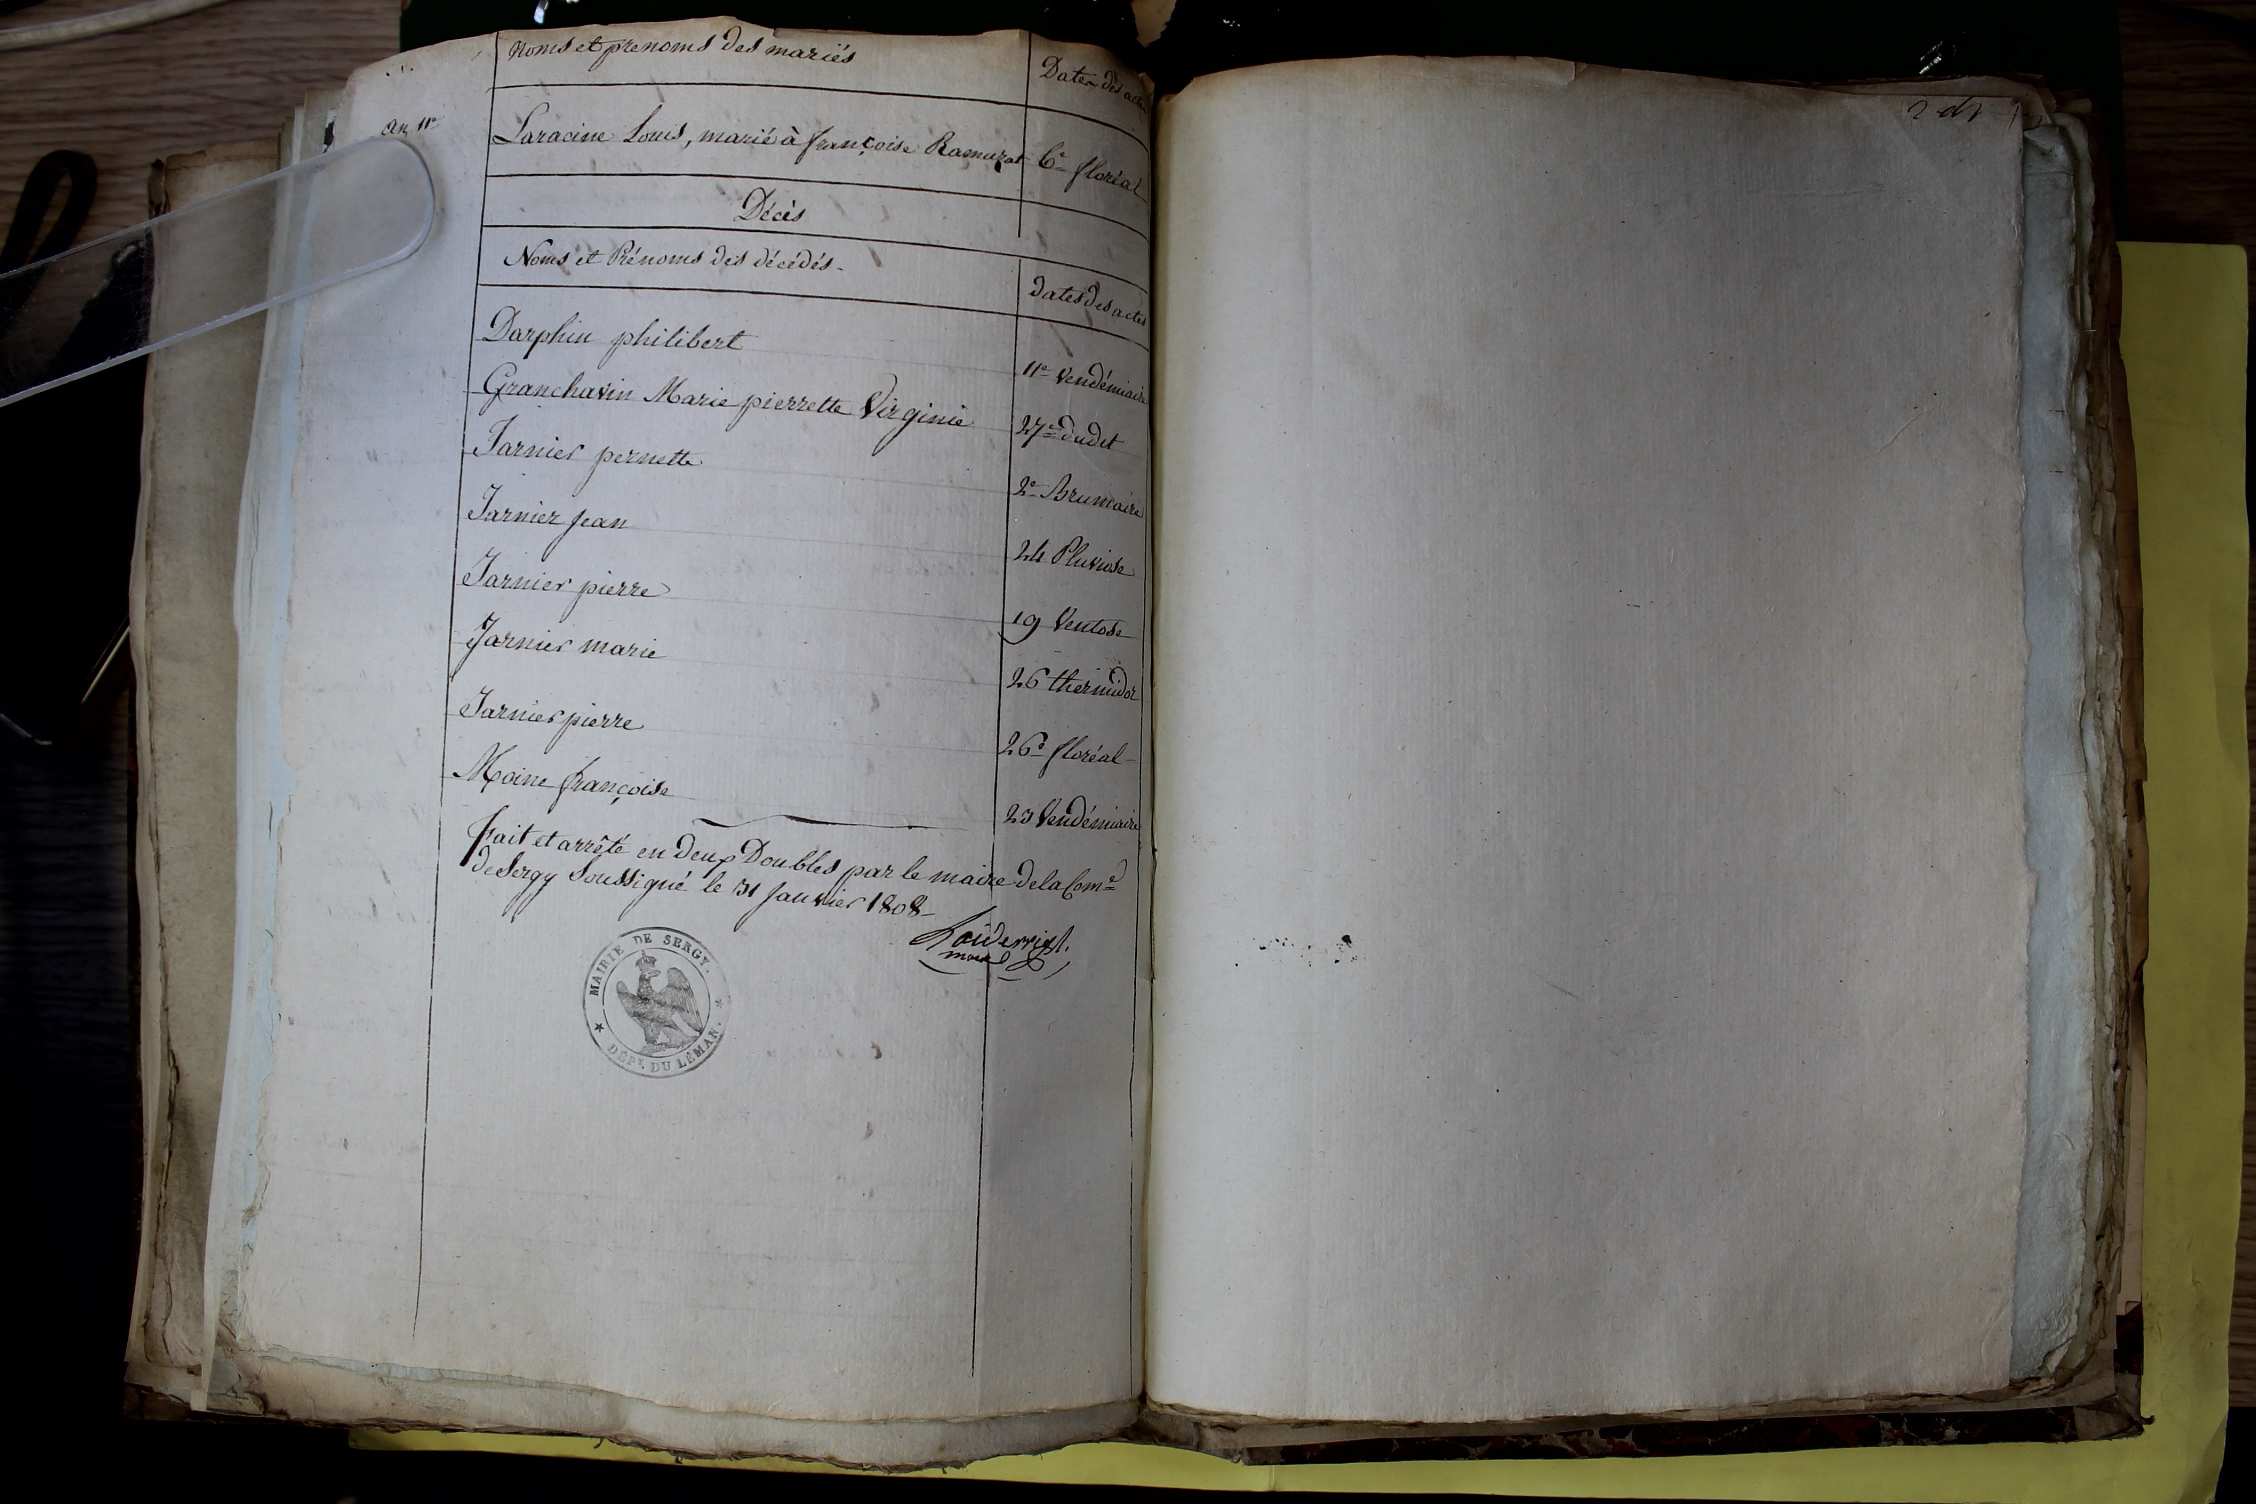 Noms et prenoms des mariés
Dates des actes
an 11e
Laracine Louis, marié à françoise Ramuzat
6e floréal
Décès
Noms et Prénoms des décédés
dates des actes
Darphin philibert
11e Vendémiaire
Granchavin Marie pierrette Virginie
27e dudit
Jarnier pernette
2e Brumaire
Jarnier Jean
24 Pluviose
Jarnier pierre
19 Ventose
Jarnier marie
26 thermidor
Jarnier pierre
26e floréal
Moine françoise
23 Vendémiaire
fait et arrêté en deux Doubles par le maire de la Come
de Sergy Soussigné le 31 Janvier 1808
maire
MAIRIE DE SERGY.
DÉPT. DU LÉMAN.